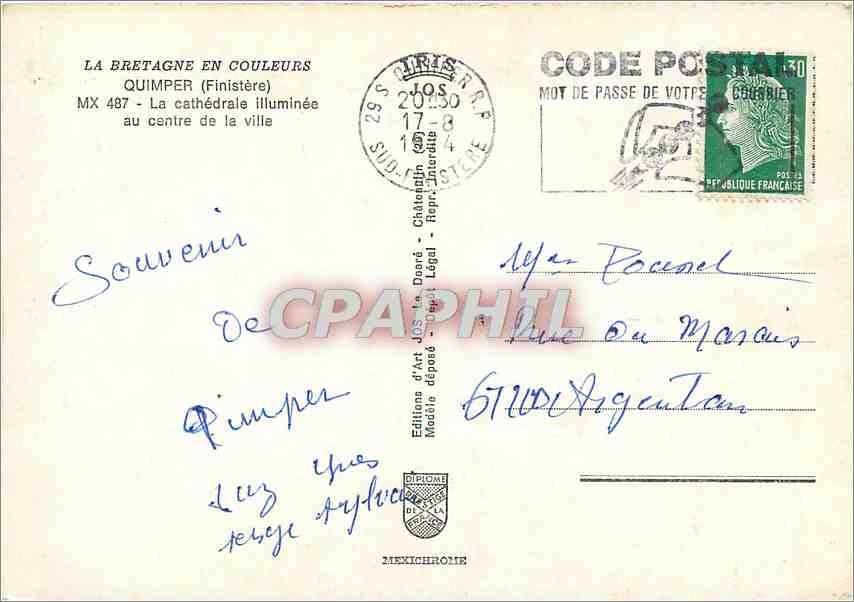 LA BRETAGNE EN COULEURS
QUIMPER (Finistère)
MX 487 - La cathédrale illuminée
au centre de la ville
IRIS
JOS
29 S QUIMPER R.P
20H30
17-8
SUD-FINISTERE
CODE POSTAL
MOT DE PASSE DE VOTRE COURRIER
0.30
POSTES
REPUBLIQUE FRANÇAISE
Souvenir
De
Qimper
Editions d'Art JOS Le Doaré - Châteaulin (29)
Modèle déposé - Dépôt Légal - Repr. Interdite
CPAPHIL
Rue du Marais
61200 Argentan
DIPLOME
PRESTIGE
DE LA
FRANCE
MEXICHROME